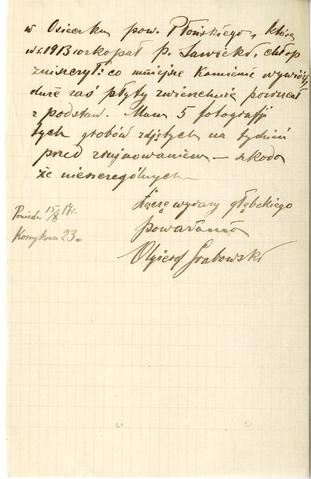 w Osieku pow. Płońskiego, które
w r. 1913 rozkopał p. Sawicki, chłop
zniszczył: co mniejsze kamienie wywiózł,
duże zaś płyty zwierzchnie pozrucał
z podstaw. Mam 5 fotografji
tych grobów zdjętych na tydzień
przed zrujnowaniem – szkoda
że nieszczególnych
Łączę wyrazy głębokiego
poważania
Olgierd Grabowski
Poniedz. 15/X 17 r.
23 m.